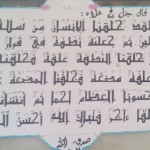 قال جل في علاه :
ولقد خلقنا الانسان من سلالة
ثم جعلنه نطفة في قرار
ثم خلقنا النطفة علقة فخلقنا
العلقة مضغة فخلقنا المضغة
فكسونا العظام لحما ثم انشانه
خلقا اخر فتبارك الله احسن
صدق الله